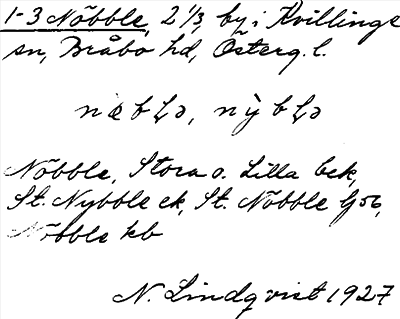 1-3 Nöbble, 2 1/3, by i Kvillinge
sn, Bråbo hd, Österg. l.
nœbḷə, nỳbḷə
Nöbble, Stora o. Lilla bek,
St. Nybble ek, St. Nöbble
Nöbble kb
N. Lindqvist 1927